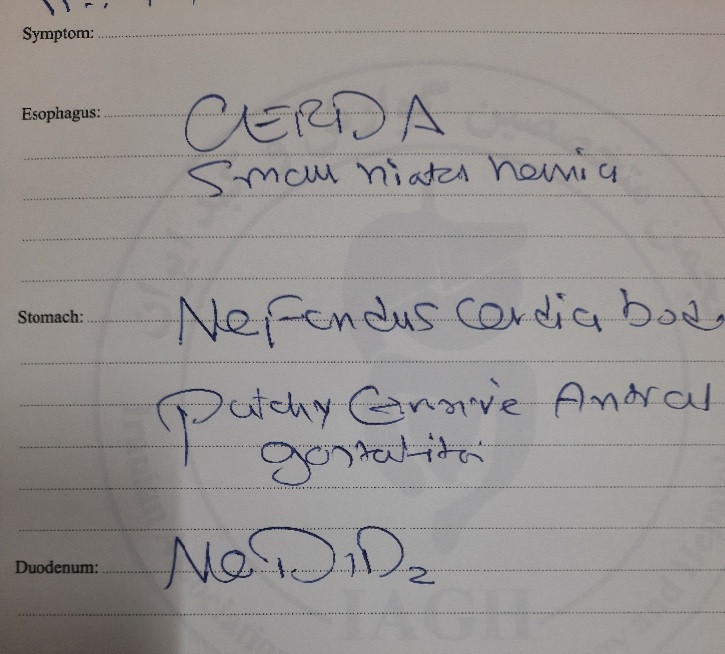 Symptom:
Esophagus: GERD A
Small hiatal hernia
Stomach: Nl Fundus Cardia body
patchy Erosive Antral
gastritis
Duodenum: Nl D1 D2
IAGH